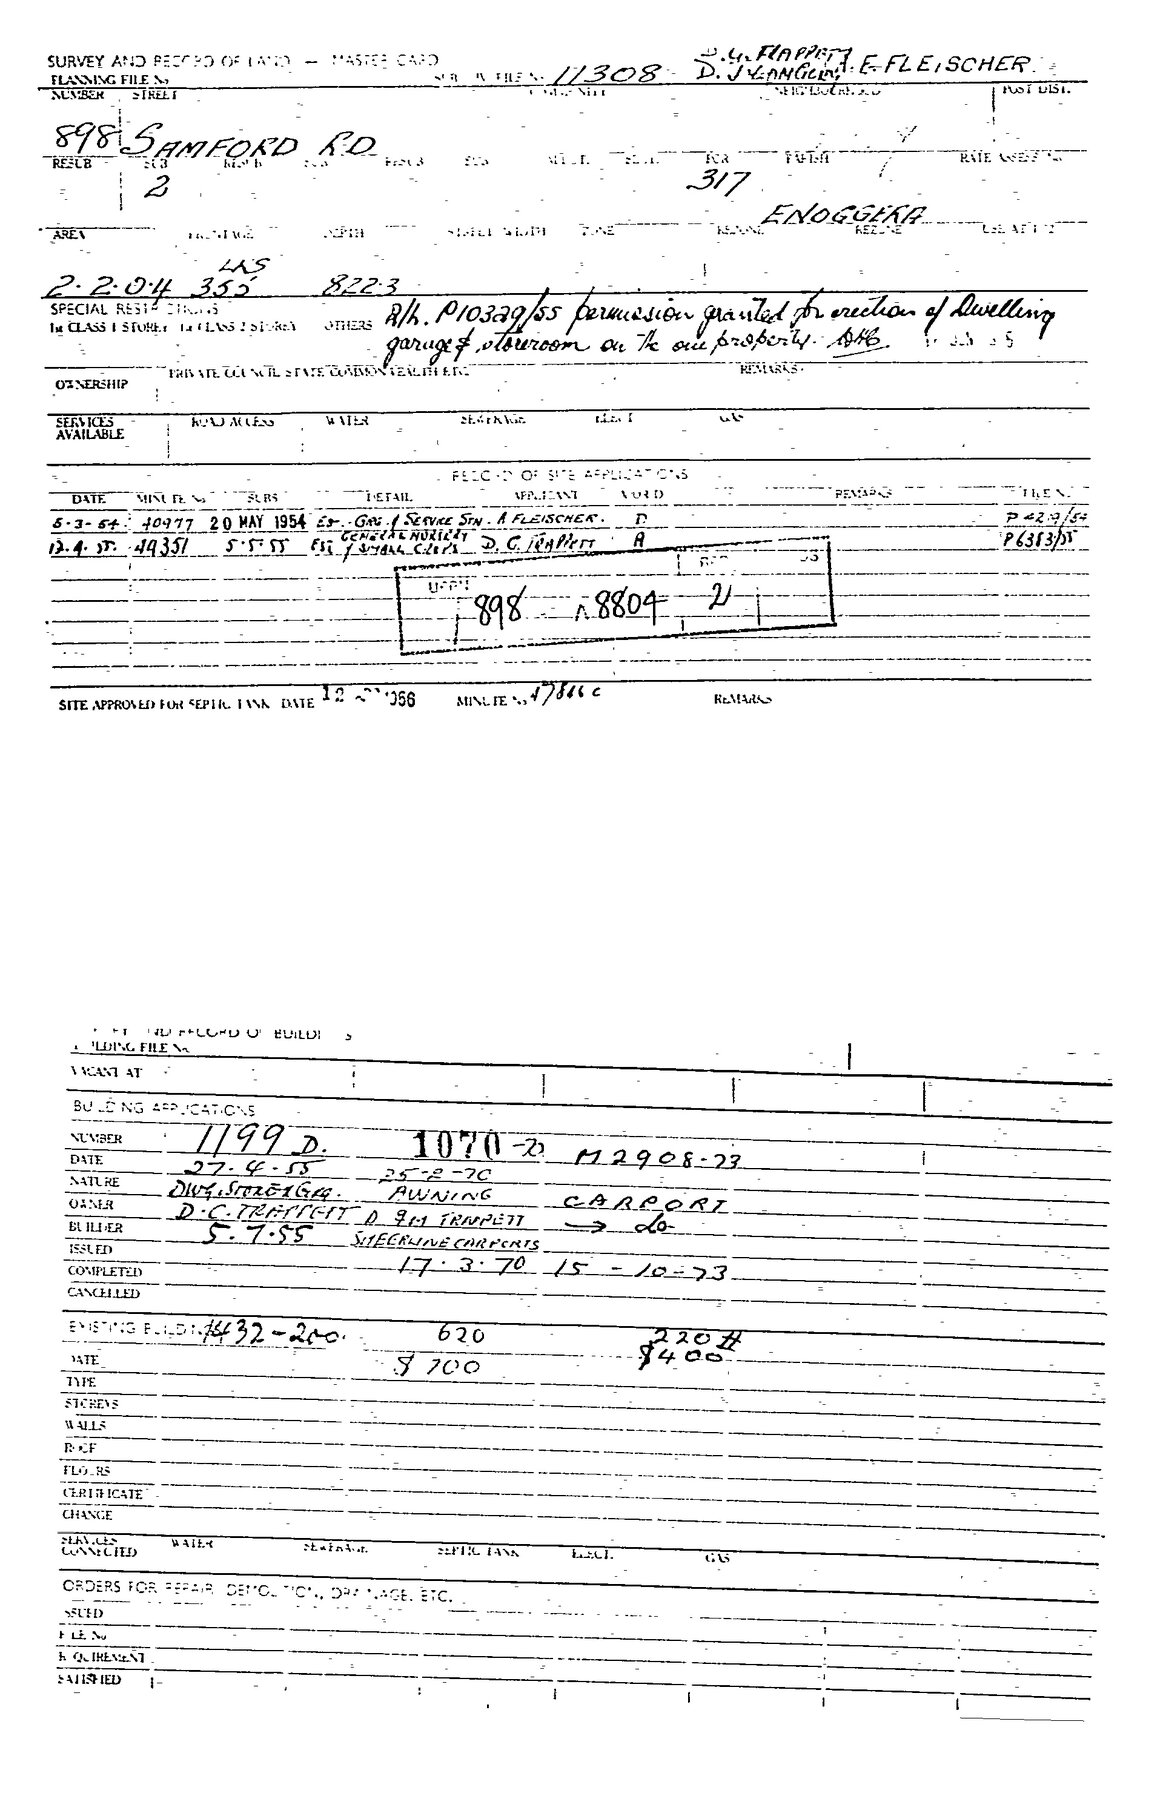 SURVEY AND RECORD OF LAND — MASTER CARD
PLANNING FILE No 11308 D. J. LANGLEY A. E. FLEISCHER
NUMBER STREET POST DIST.
898 SAMFORD RD
RESUB SUB RESUB SUB RESUB SUB POR PARISH RATE ASSESS No
2 317
ENOGGERA
AREA FRONTAGE DEPTH STREET WIDTH ZONE REZONE REZONE USE AT
LKS
2.2.04 355 822.3
SPECIAL RESTRICTIONS
1st CLASS 1 STOREY 1st CLASS 2 STOREY OTHERS
R/L. P10329/55 permission granted for erection of Dwelling
garage & storeroom on the one property.
OWNERSHIP PRIVATE COUNCIL STATE COMMONWEALTH ETC. REMARKS
SERVICES AVAILABLE ROAD ACCESS WATER SEWERAGE ELECT GAS
RECORD OF SITE APPLICATIONS
DATE MINUTE No SUBS DETAIL APPLICANT WORD REMARKS FILE No
5-3-54 40977 20 MAY 1954 Est. Gge. & Service Stn. A FLEISCHER. D
12.4.55. 49351 5.5.55 Est GENERAL NURSERY & SMALL CROPS D. C. TRAPPETT A P6383/55
898 8804 2
SITE APPROVED FOR SEPTIC TANK DATE 12 1956 MINUTE No REMARKS
SURVEY AND RECORD OF BUILDINGS
BUILDING FILE No
VACANT AT
BUILDING APPLICATIONS
NUMBER 1199 D. 1070-70 M2908-73
DATE 27.4.55 25-2-70
NATURE DWG. STORE & GGE. AWNING CARPORT
OWNER D.C. TRAPPETT D & M TRAPPETT → do
BUILDER 5.7.55 STEERLINE CARPORTS
ISSUED 17.3.70 15-10-73
COMPLETED
CANCELLED
EXISTING BUILDINGS 1432-200. 620 220 #
DATE $700 $400
TYPE
STOREYS
WALLS
ROOF
FLOORS
CERTIFICATE
CHANGE
SERVICES CONNECTED WATER SEWERAGE SEPTIC TANK ELECT. GAS
ORDERS FOR REPAIR, DEMOLITION, DRAINAGE, ETC.
ISSUED
FILE No
REQUIREMENT
SATISFIED